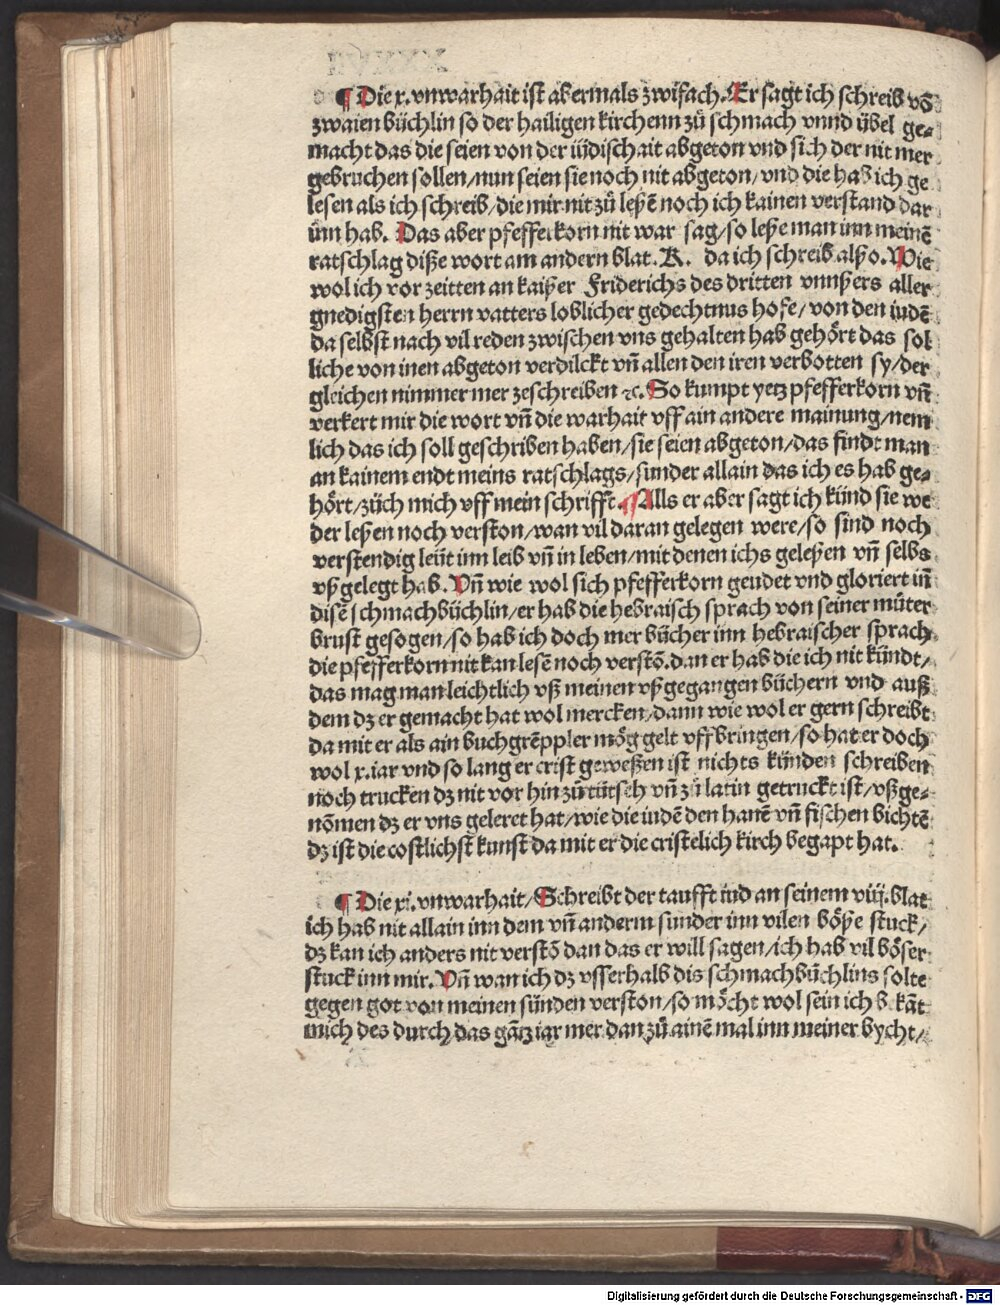 ¶ Die x. vnwarhait ist abermals zwifach. Er sagt ich schreib võ
zwaien büchlin so der hailigen kirchenn zů schmach vnnd übel ge⸗
macht das die seien von der iüdischait abgeton vnd sich der nit mer
gebruchen sollen/nun seien sie noch nit abgeton/vnd die hab ich ge
lesen als ich schreib/die mir nit zů leßẽ noch ich kainen verstand dar
inn hab. Das aber pfefferkorn nit war sag/so leße man inn meinẽ
ratschlag diße wort am andern blat. K. da ich schreib alßo. Wie
wol ich vor zeitten an kaißer Friderichs des dritten vnnßers aller
gnedigsten herrn vatters loblicher gedechtnus hofe/von den iudẽ
da selbst nach vil reden zwischen vns gehalten hab gehört das sol
liche von inen abgeton verdilckt vñ allen den iren verbotten sy/der
gleichen nimmer mer zeschreiben ⁊c. So kumpt yetz pfefferkorn vñ
verkert mir die wort vñ die warhait vff ain andere mainung/nem
lich das ich soll geschriben haben/sie seien abgeton/das findt man
an kainem endt meins ratschlags/sunder allain das ich es hab ge⸗
hört/züch mich vff mein schrifft. ¶ Alls er aber sagt ich künd sie we
der leßen noch verston/wan vil daran gelegen were/so sind noch
verstendig leüt inn leib vñ in leben/mit denen ichs geleßen vñ selbs
vßgelegt hab. Vñ wie wol sich pfefferkorn geudet vnd gloriert iñ
disẽ schmachbüchlin/er hab die hebraisch sprach von seiner můter
brust gesogen/so hab ich doch mer bücher inn hebraischer sprach
die pfefferkorn nit kan lesẽ noch verstõ. dan er hab die ich nit kündt/
das mag man leichtlich vß meinen vßgegangen büchern vnd auß
dem dz er gemacht hat wol mercken/dann wie wol er gern schreibt
da mit er als ain buchgrẽppler mög gelt vffbringen/so hat er doch
wol x. iar vnd so lang er crist geweßen ist nichts künden schreiben
noch trucken dz nit vor hin zů tütsch vñ zů latin getruckt ist/vßge⸗
nõmen dz er vns geleret hat/wie die iudẽ den hanẽ vñ fischen bichtẽ
dz ist die costlichst kunst da mit er die cristelich kirch begapt hat.
¶ Die xi. vnwarhait/Schreibt der taufft iud an seinem viij. blat
ich hab nit allain inn dem vñ anderm sunder inn vilen böße stuck/
dz kan ich anders nit verstõ dan das er will sagen/ich hab vil böser
stuck inn mir. Vñ wan ich dz vsserhalb dis schmachbüchlins solte
gegen got von meinen sünden verston/so möcht wol sein ich bekãt
mich des durch das gãtz iar mer dan zů ainẽ mal inn meiner bycht/
Digitalisierung gefördert durch die Deutsche Forschungsgemeinschaft - DFG